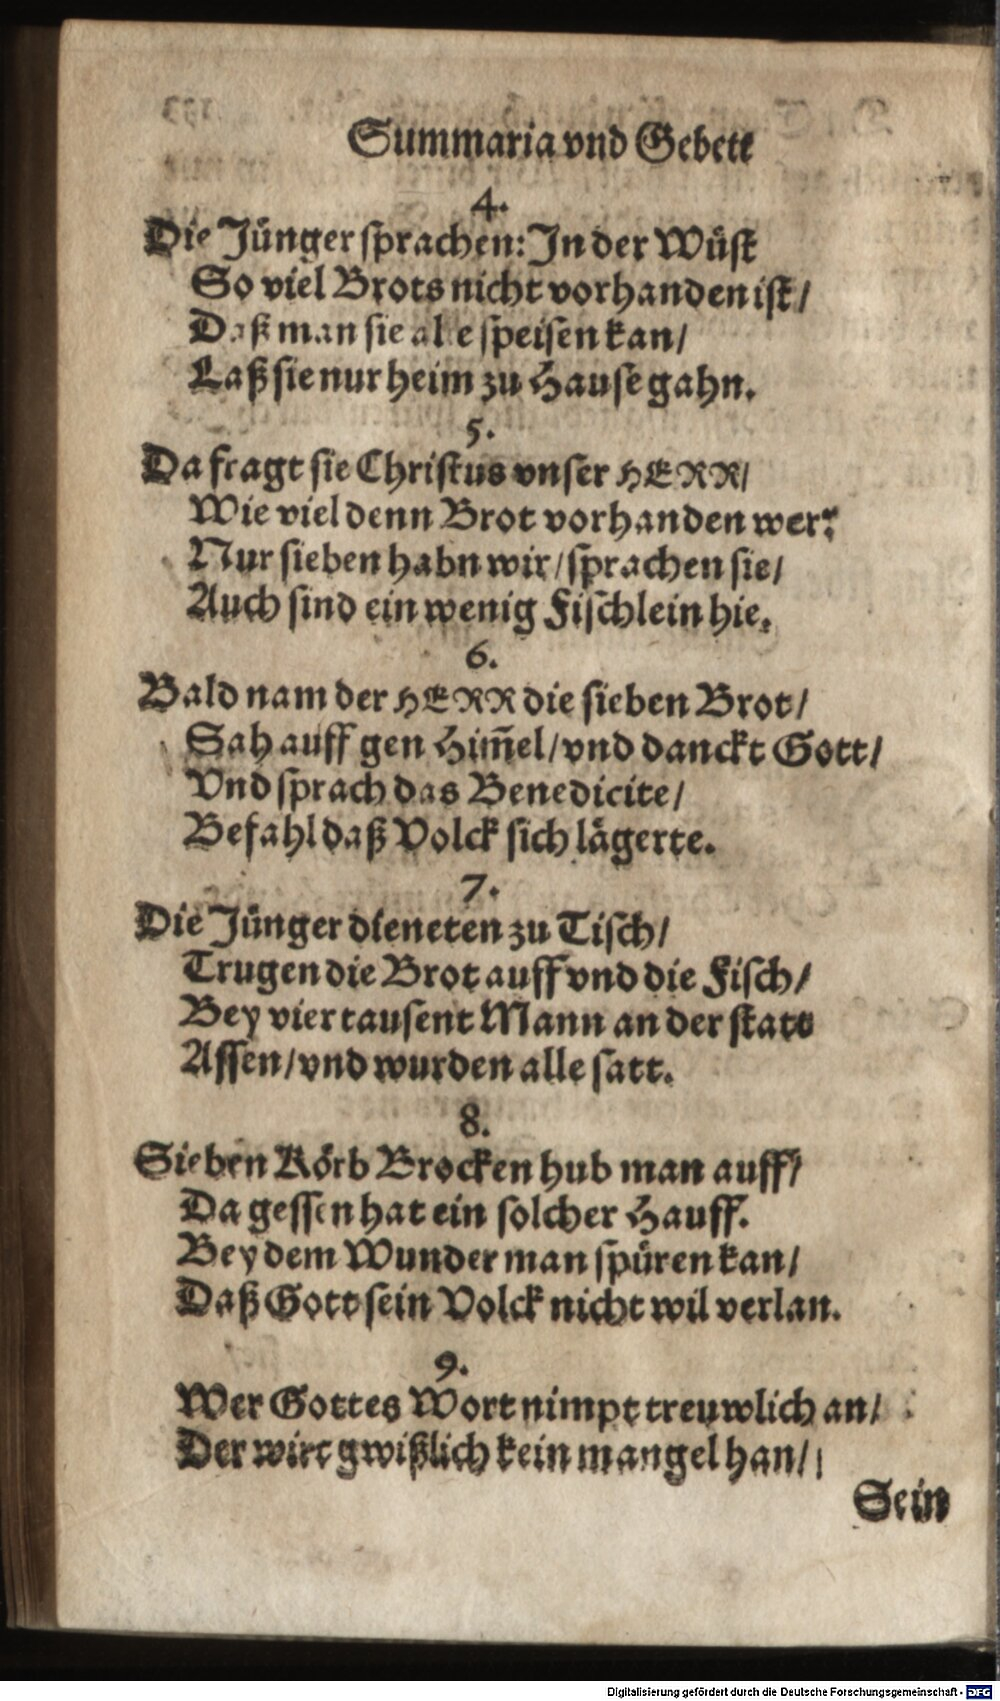 Summaria vnd Gebett
4.
Die Jünger sprachen: In der Wüst
So viel Brots nicht vorhanden ist/
Daß man sie alle speisen kan/
Laß sie nur heim zu Hause gahn.
5.
Da fragt sie Christus vnser HERR/
Wie viel denn Brot vorhanden wer?
Nur sieben habn wir/ sprachen sie/
Auch sind ein wenig Fischlein hie.
6.
Bald nam der HERR die sieben Brot/
Sah auff gen Him̅el/ vnd danckt Gott/
Vnd sprach das Benedicite/
Befahl daß Volck sich lägerte.
7.
Die Jünger dieneten zu Tisch/
Trugen die Brot auff vnd die Fisch/
Bey vier tausent Mann an der statt
Assen/ vnd wurden alle satt.
8.
Sieben Körb Brocken hub man auff/
Da gessen hat ein solcher Hauff.
Bey dem Wunder man spüren kan/
Daß Gott sein Volck nicht wil verlan.
9.
Wer Gottes Wort nimpt treuwlich an/
Der wirt gwißlich kein mangel han/
Sein
Digitalisierung gefördert durch die Deutsche Forschungsgemeinschaft - DFG